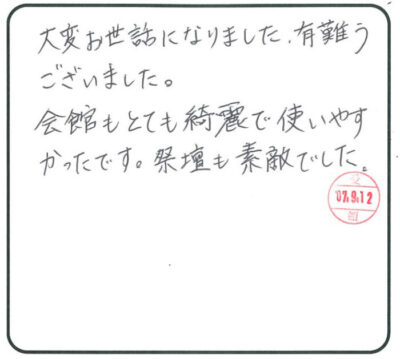 大変お世話になりました、有難う
ございました。
会館もとても綺麗で使いやす
かったです。祭壇も素敵でした。
受
07.9.12